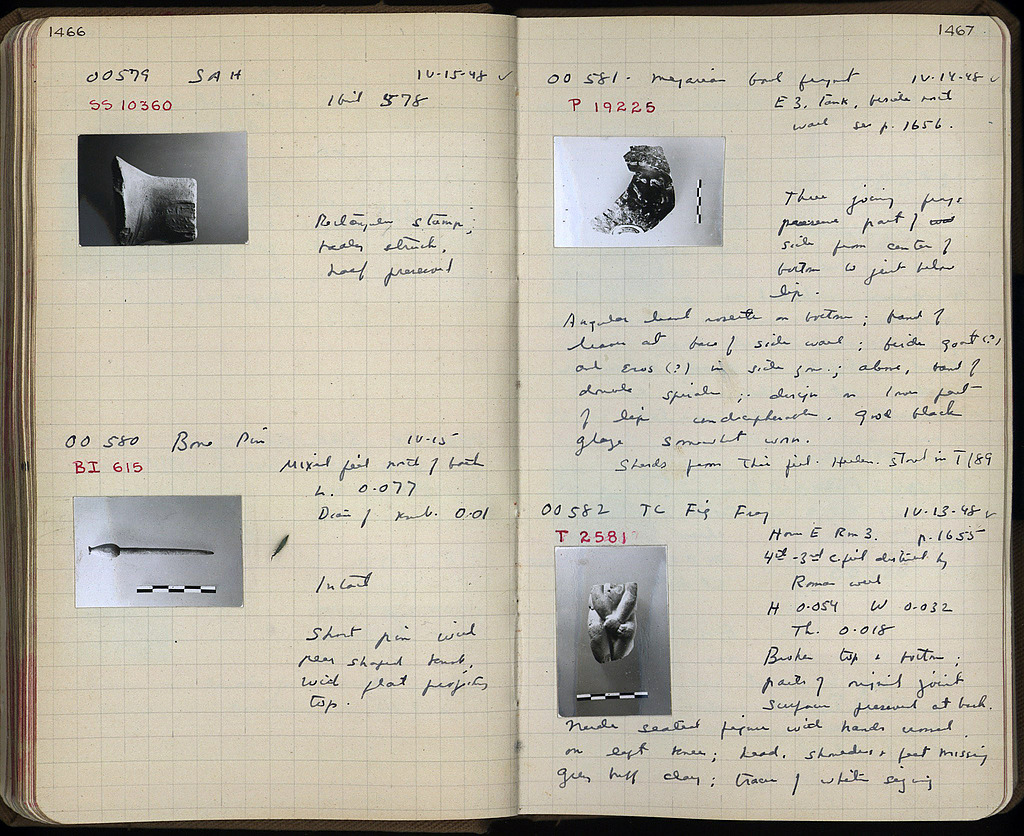 1466
OO 579 SAH IV-15-48 ✓
SS 10360
Ibid 578
Rectangular stamp;
struck,
half preserved
OO 580 Bone Pin IV-15
BI 615
Mixed fill north of
L. 0.077
Diam of knob. 0.01
Intact
Short pin with
pear shaped knob,
with flat projecting
top.
1467
OO 581. Megarian bowl fragment IV-14-48 ✓
P 19225
E 3. Tank, beside north
wall see p. 1656.
Three joining frags
preserve part of
side from center of
bottom to just below
lip.
Angular leaved rosette on bottom; band of
leaves at base of side wall; beside goat (?)
and Eros (?) in side zone; above, band of
double spirals; design on lower part
of lip undecipherable. Good black
glaze somewhat worn.
Sherds from this fill. Hellen. Stored in T/89
OO 582 TC Fig Frag IV-13-48 ✓
T 2581
House E Rm 3. p. 1655
4th-3rd c fill disturbed by
Roman wall
H 0.054 W 0.032
Th. 0.018
Broken top & bottom;
parts of original joint
surface preserved at back.
Nude seated figure with hands crossed
on left knee; head, shoulders & feet missing
Grey buff clay; traces of white sizing